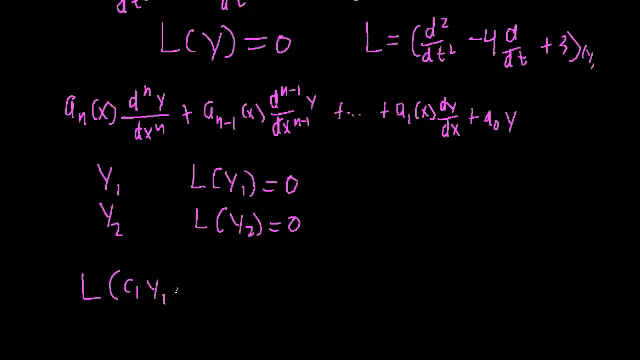 dt dt
L(y)=0 L=(d²/dt² -4 d/dt +3)(y)
aₙ(x) dⁿy/dxⁿ + aₙ₋₁(x) dⁿ⁻¹y/dxⁿ⁻¹ + ... + a₁(x) dy/dx + a₀ y
y₁ L(y₁)=0
y₂ L(y₂)=0
L(c₁y₁